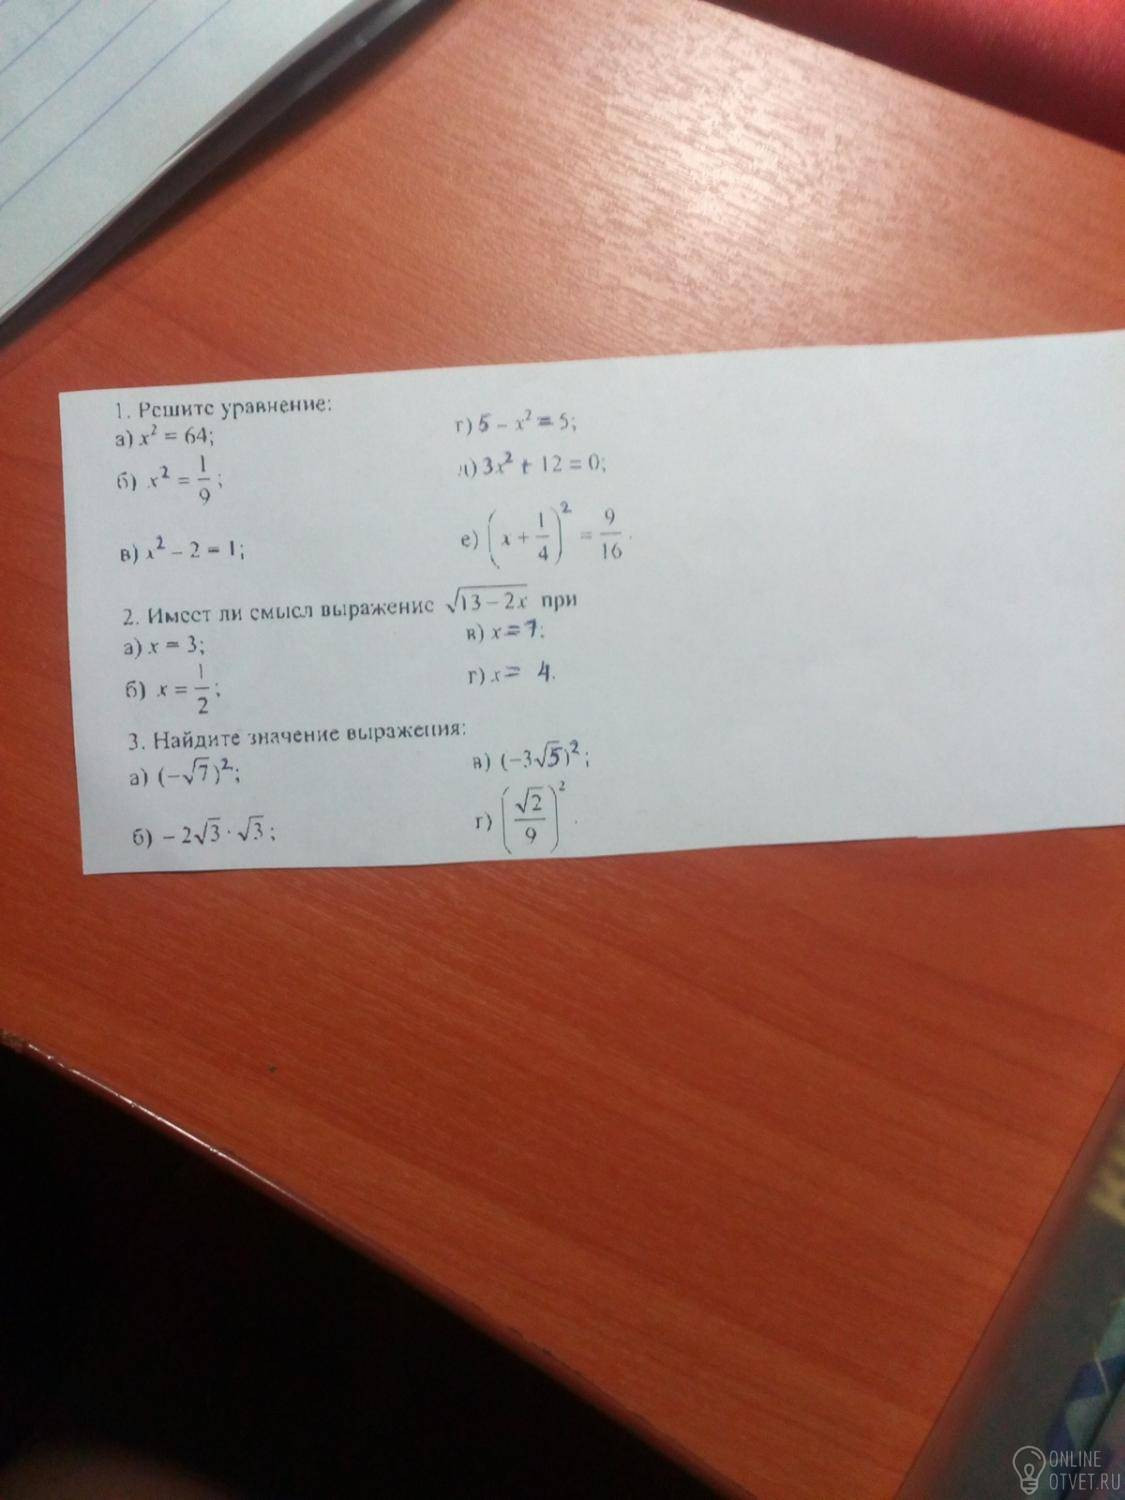 1. Решите уравнение:
а) x² = 64;
г) 5 – x² = 5;
б) x² = 1/9;
д) 3x² + 12 = 0;
в) x² – 2 = 1;
е) (x + 1/4)² = 9/16.
2. Имеет ли смысл выражение √(13 – 2x) при
а) x = 3;
в) x = 7;
б) x = 1/2;
г) x = 4.
3. Найдите значение выражения:
а) (–√7)²;
в) (–3√5)²;
б) – 2√3 · √3;
г) (√2/9)².
ONLINE
OTVET.RU